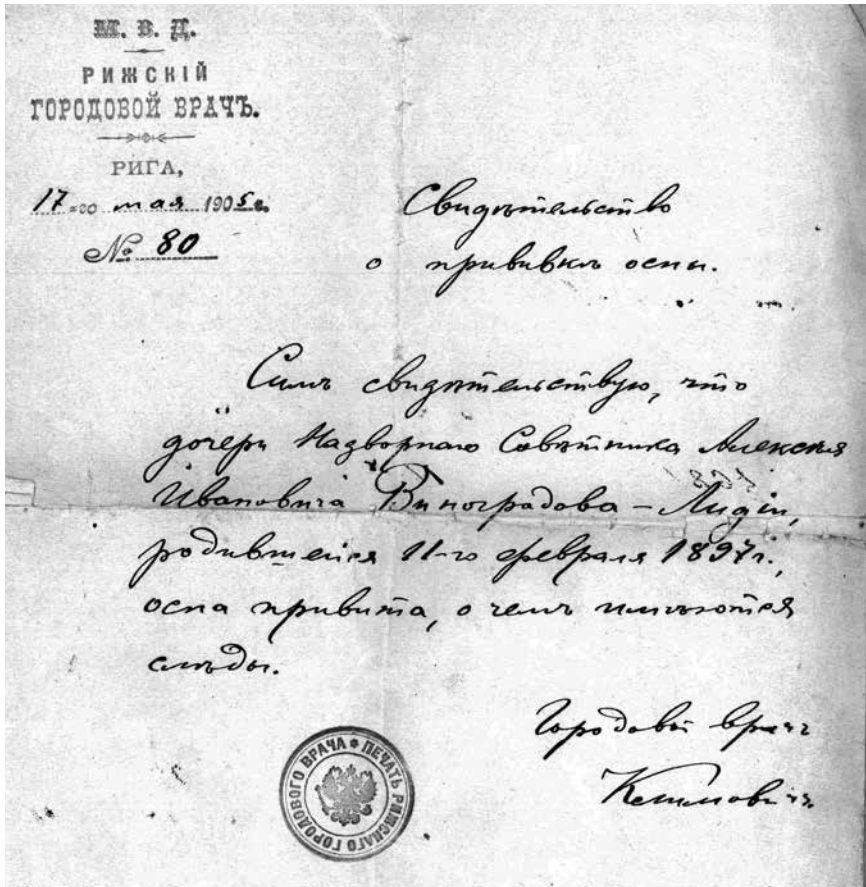 М. В. Д.
РИЖСКІЙ
ГОРОДОВОЙ ВРАЧЪ.
РИГА,
17-го мая 1905 г.
№ 80
Свидѣтельство
о прививкѣ оспы.
Симъ свидѣтельствую, что
дочери Надворнаго Совѣтника Алексѣя
Ивановича Виноградова – Лидіи,
родившейся 11-го февраля 1897 г.,
оспа привита, о чемъ имѣются
слѣды.
Городовой врачъ
ПЕЧАТЬ РИЖСКАГО ГОРОДОВОГО ВРАЧА